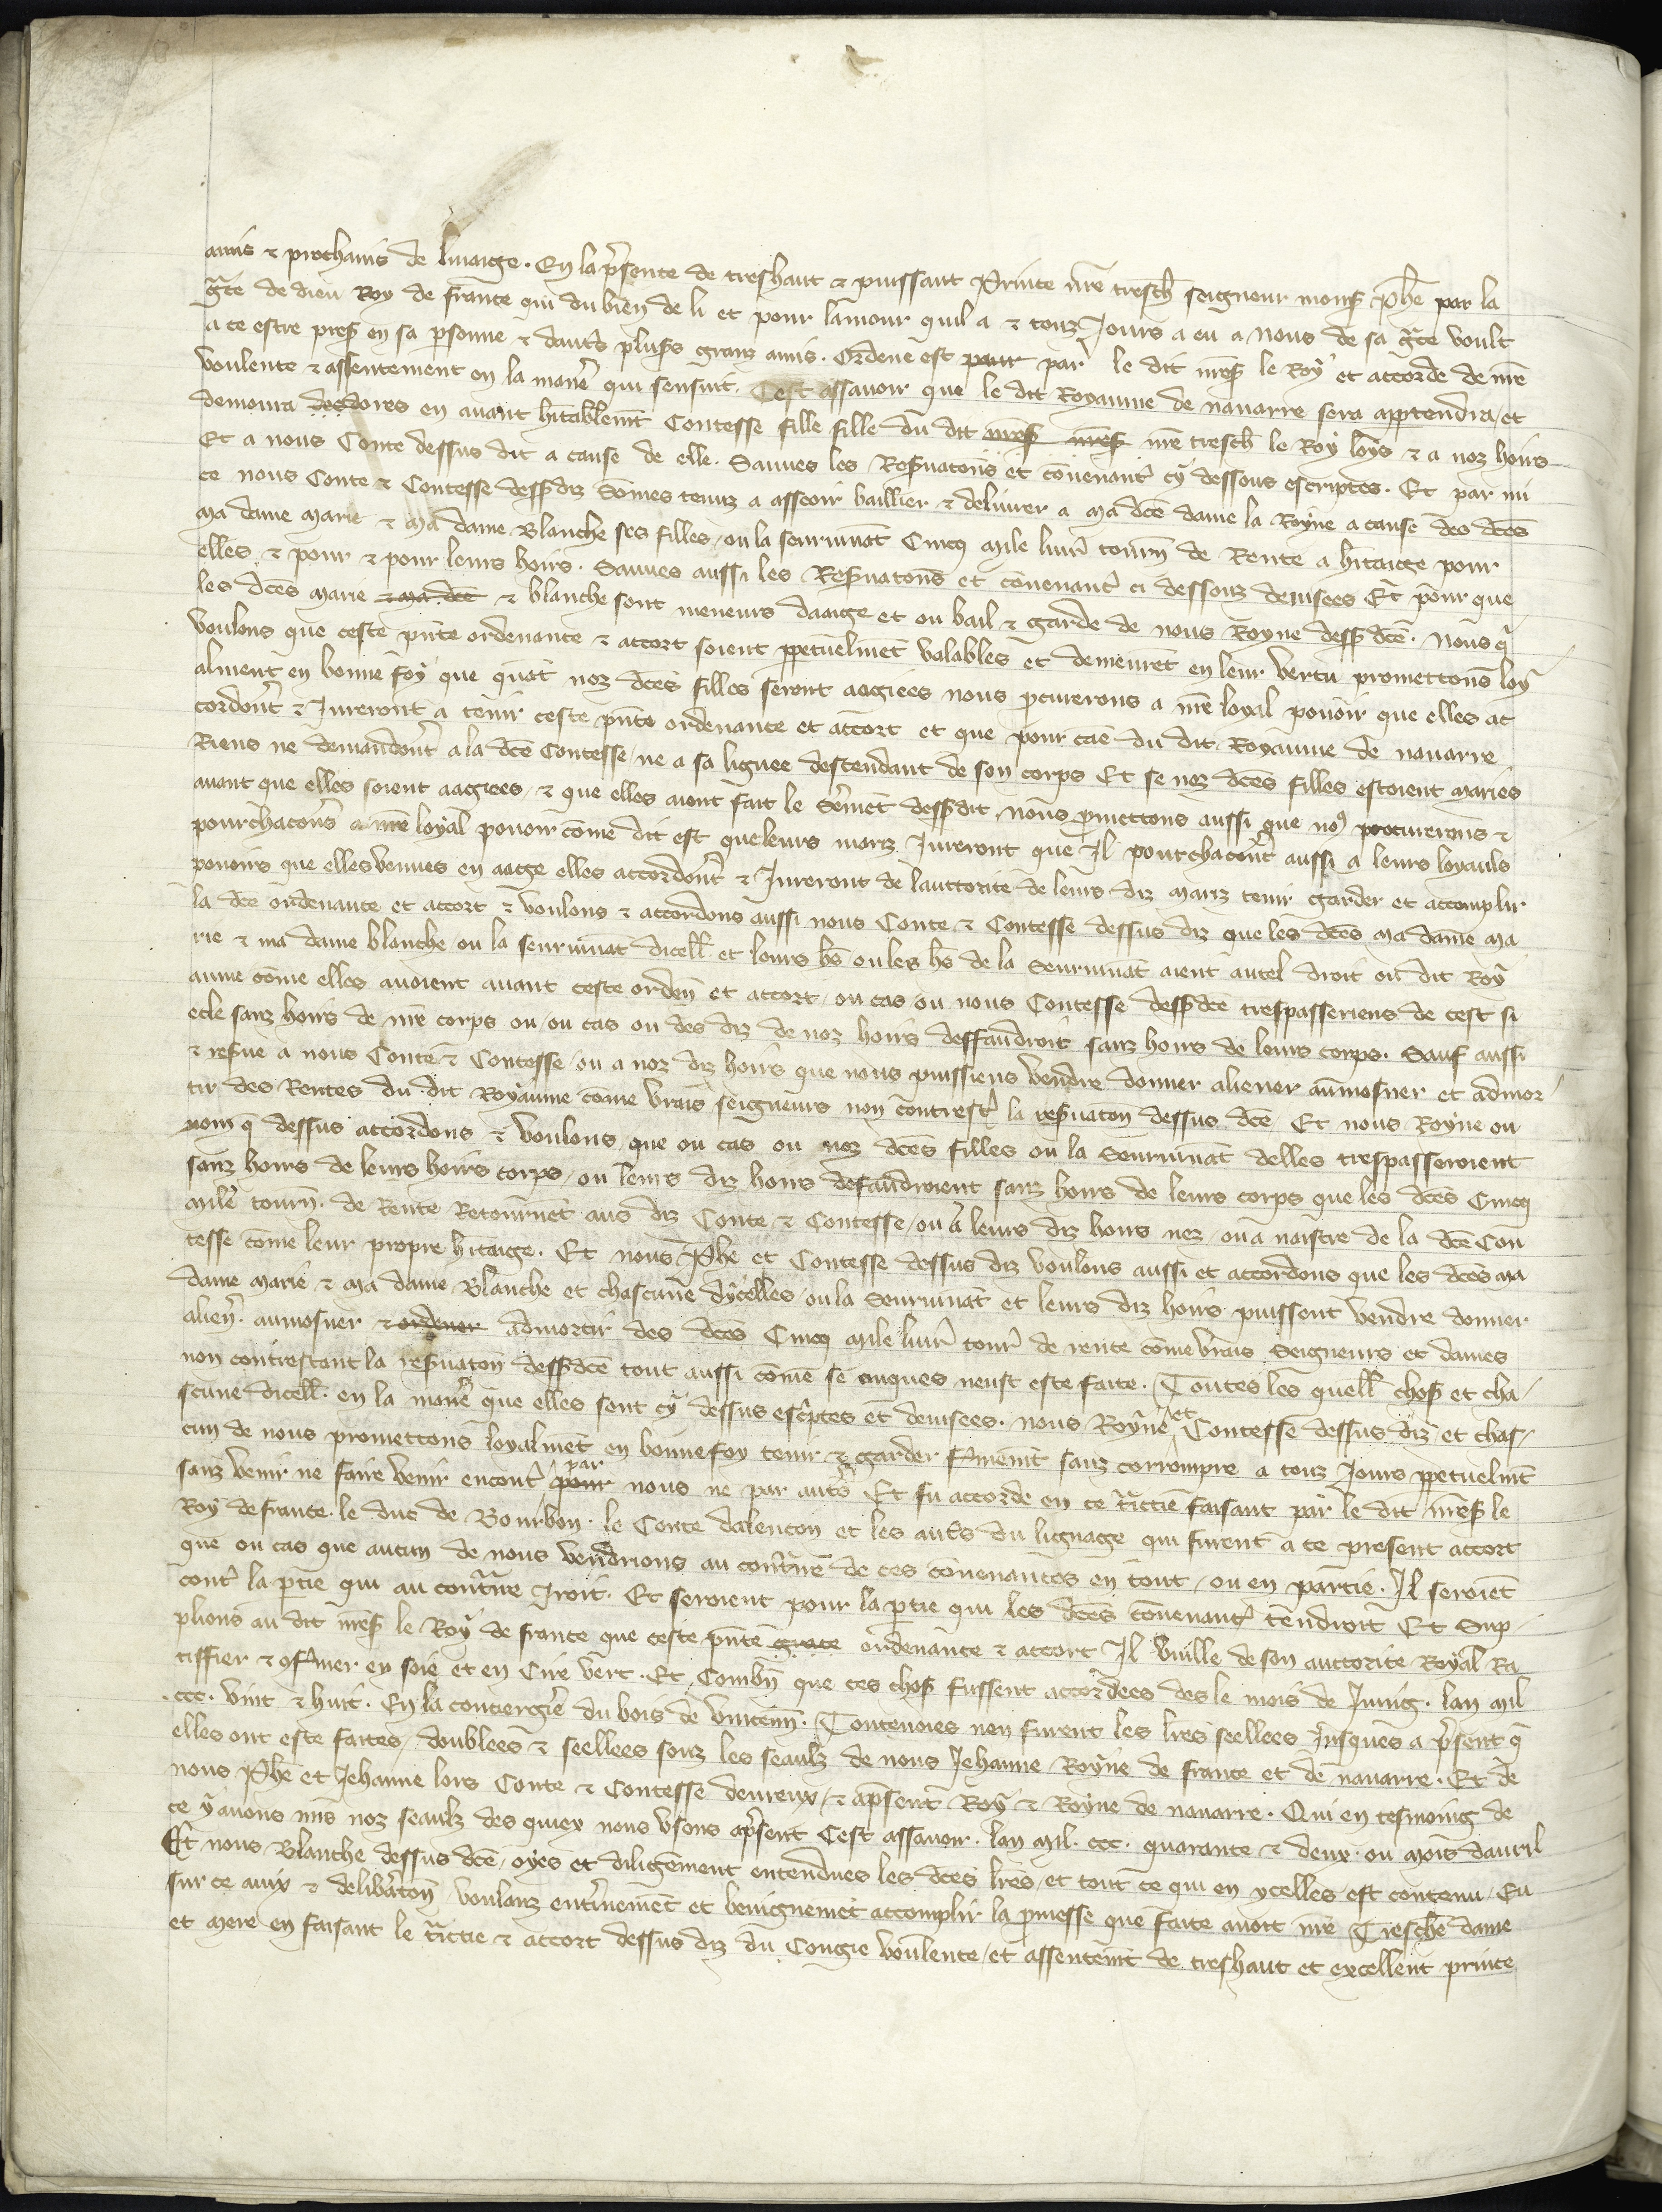 amis & prochains de linaige. En la pñsence de treshaut & puissant Prince nr̃e tresch̃ seigneur monsʳ Ph̃e par la
gr̃ce de dieu Roy de france qui du bien de li et pour lamour quil a & touz Jours a eu a nous de sa gr̃ce voult
a ce estre pñs en sa psonne & dautˢ plusʳˢ granz amis. Ordene est pour par le dit monsʳ le Roy et accorde de nr̃e
voulente & assentement en la manˢe qui sensuit. Cest assavoir que le dit Royaume de navarre sera appendra, et
demoura desdores en avant hitablemt̃ Contesse fille fille du dit monsʳ monsʳ nr̃e tresch̃ le Roy loys & a noz hoirs
Et a nous Conte dessus dit a cause de elle. Sauves les Resˢvatoñs et convenantˢ cy dessous escriptes. Et par mi
ce nous Conte & Contesse dessˢdiz Sõmes tenuz a asseoir baillier & delivrer a ma dc̃e dame la Royne a cause des dc̃es
ma dame marie & ma dame Blanche ses filles, ou la seurvivãt Cincq mile livrˢ tourñ de Rente a hˢitaige pour
elles & pour & pour leurs hoirs. Sauves aussi les Resˢvatoñs et convenantˢ ci dessouz devisees Et pour que
les dc̃es marie & ma dc̃e & blanche sont meneurs daaige et ou bail & garde de nous Royne dessˢ dc̃e. Nous qˢ
voulons que ceste pñte ordenance & accort soient ppetuelmẽt valables et demeurẽt en leur vertu promettons loy
alment en bonne foy que quãt noz dc̃es filles seront aagiees nous pcurerons a nr̃e loyal povoir que elles ac
cordontˢ & Jureront a tenir ceste pñte ordenance et accort et que pour cãe du dit Royaume de navarre
Riens ne demandontˢ a la dc̃e Contesse, ne a sa lignee descendant de son corps Et se noz dc̃es filles estoient maries
avant que elles soient aagiees, & que elles aient fait le Sˢmẽt dessˢdit, nous pmettons aussi que noˀ procurerons &
pourchaconsˢ a nr̃e loyal povoir cõme dit est queleurs mariz Jureront que Il pourchacontˢ aussi a leurs loyauls
povoirs que elles venues en aage elles accordontˢ & Jureront de lauttorite de leurs diz mariz tenir garder et accomplir
la dc̃e ordenance et accort & voulons & accordons aussi nous Conte & Contesse dessus diz que les dc̃es ma dame ma
rie & ma dame blanche ou la seurvivãt dicell̃ et leurs hˢs ou les hˢs de la Seurvivãt aient autel droit ou dit Roy
aume cõme elles avoient avant ceste ordeñ et accort, ou cas ou nous Contesse dessˢdc̃e trespasseriens de cest si
ecle sanz hoirs de nr̃e corps ou, ou cas ou des diz de noz hoirs deffaudroit sanz hoirs de leurs corps. Sauf aussi
& resˢve a nous Conte & Contesse ou a noz diz hoirs que nous puissiens vendre donner aliener aumosner et admor
tir des Rentes du dit Royaume cõme vrais seigneurs non contrestˢ la resˢvatoñ dessus dc̃e. Et nous Royne ou
nom qˢ dessus accordons & voulons que ou cas ou noz dc̃es filles ou la Seurvivãt delles trespasseroient
sanz hoirs de leurs hoirs corps, ou leurs diz hoirs defaudroient sanz hoirs de leurs corps que les dc̃es Cincq
mile tourñ. de Rente Retournẽt aus diz Conte & Contesse, ou a leurs diz hoirs nez, ou a naistre de la dc̃e Con
tesse cõme leur propre hˢitaige. Et nous Ph̃e et Contesse dessus diz voulons aussi et accordons que les dc̃es ma
dame marie & ma dame Blanche et chascune dycelles, ou la Seurvivãt et leurs diz hoirs puissent vendre donner
alienˢ. aumosner & ordener admortir des dc̃es Cincq mile livrˢ tourˢ de rente cõme vrais Seigneurs et dames
non contrestant la resˢvatoñ dessˢdc̃e tout aussi cõme se onques neust este faite. Toutes les quell̃ chosˢ et cha,
scune dicell̃. en la manˢe que elles sont cy dessus escˢptes et devisees. nous Royne et Contesse dessus diz et chas,
cun de nous promettons loyalmẽt en bonne foy tenir & garder fˢmemt̃ sanz corrompre a touz Jours ppetuelmt̃
sanz venir ne faire venir encontˢ pour par nous ne par autˢs Et fu accorde en ce tr̃ctie faisant par le dit monsʳ le
Roy de france. le duc de Bourbon. le Conte dalencon et les autˢs du lignage qui furent a ce present accort
que ou cas que aucun de nous vendrions au contrˢre de ces convenances en tout, ou en partie. Il seroiẽt
contˢ la ptie qui au contrˢre Iroit. Et seroient pour la ptie qui les dc̃es convenantˢ tendroit Et Sup,
plions au dit monsʳ le Roy de france que ceste pñte grace ordenance & accort Il vuille de son auctorite Royal Ra
tiffier & ꝯfˢmer en soie et en Cire vert. Et Combñ que ces chosˢ fussent accordees des le mois de Juing. lan mil
.ccc. vint & huit. En la conciergˢie du bois de vinceñn. Toutevoies nen furent les lr̃es seellees Jusques a pˢsent qˢ
elles ont este faites, doublees & seellees souz les seaulz de nous Jehanne Royne de france et de navarre. Et de
nous Ph̃e et Jehanne lors Conte & Contesse devreux, & apˢsent Roy & Royne de navarre. Qui en tesmoing de
ce y avons mis noz seaulz des quiex nous usons apˢsent Cest assavoir. lan mil. ccc. quarante & deux. ou mois davril
Et nous Blanche dessus dc̃e, oyes et diligemment entendues les dc̃es lr̃es, et tout ce qui en ycelles est contenu, Eu
sur ce avix & delibˢatoñ voulanz entˢinemẽt et benignemẽt accomplir la pmesse que faite avoit nr̃e Tresch̃e dame
et mere en faisant le tr̃ctie & accort dessus diz du Congie voulente, et assentemt̃ de treshaut et excellent prince